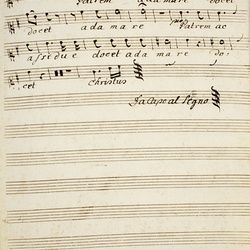 Patrem adamare
docet adamare Patrem ac
assidue docet adamare do=
cet Christus
Da Capo al Segno